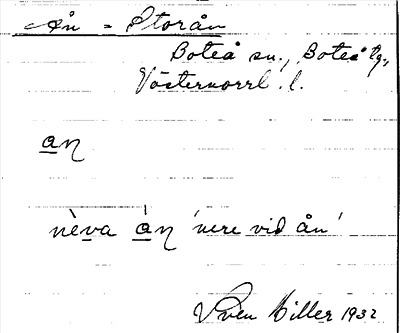 Ån = Storån
Boteå sn., Boteå tg.,
Västernorrl. l.
a̲ŋ
nèva̲ à̲ŋ 'nere vid ån'
Sven Hiller 1932